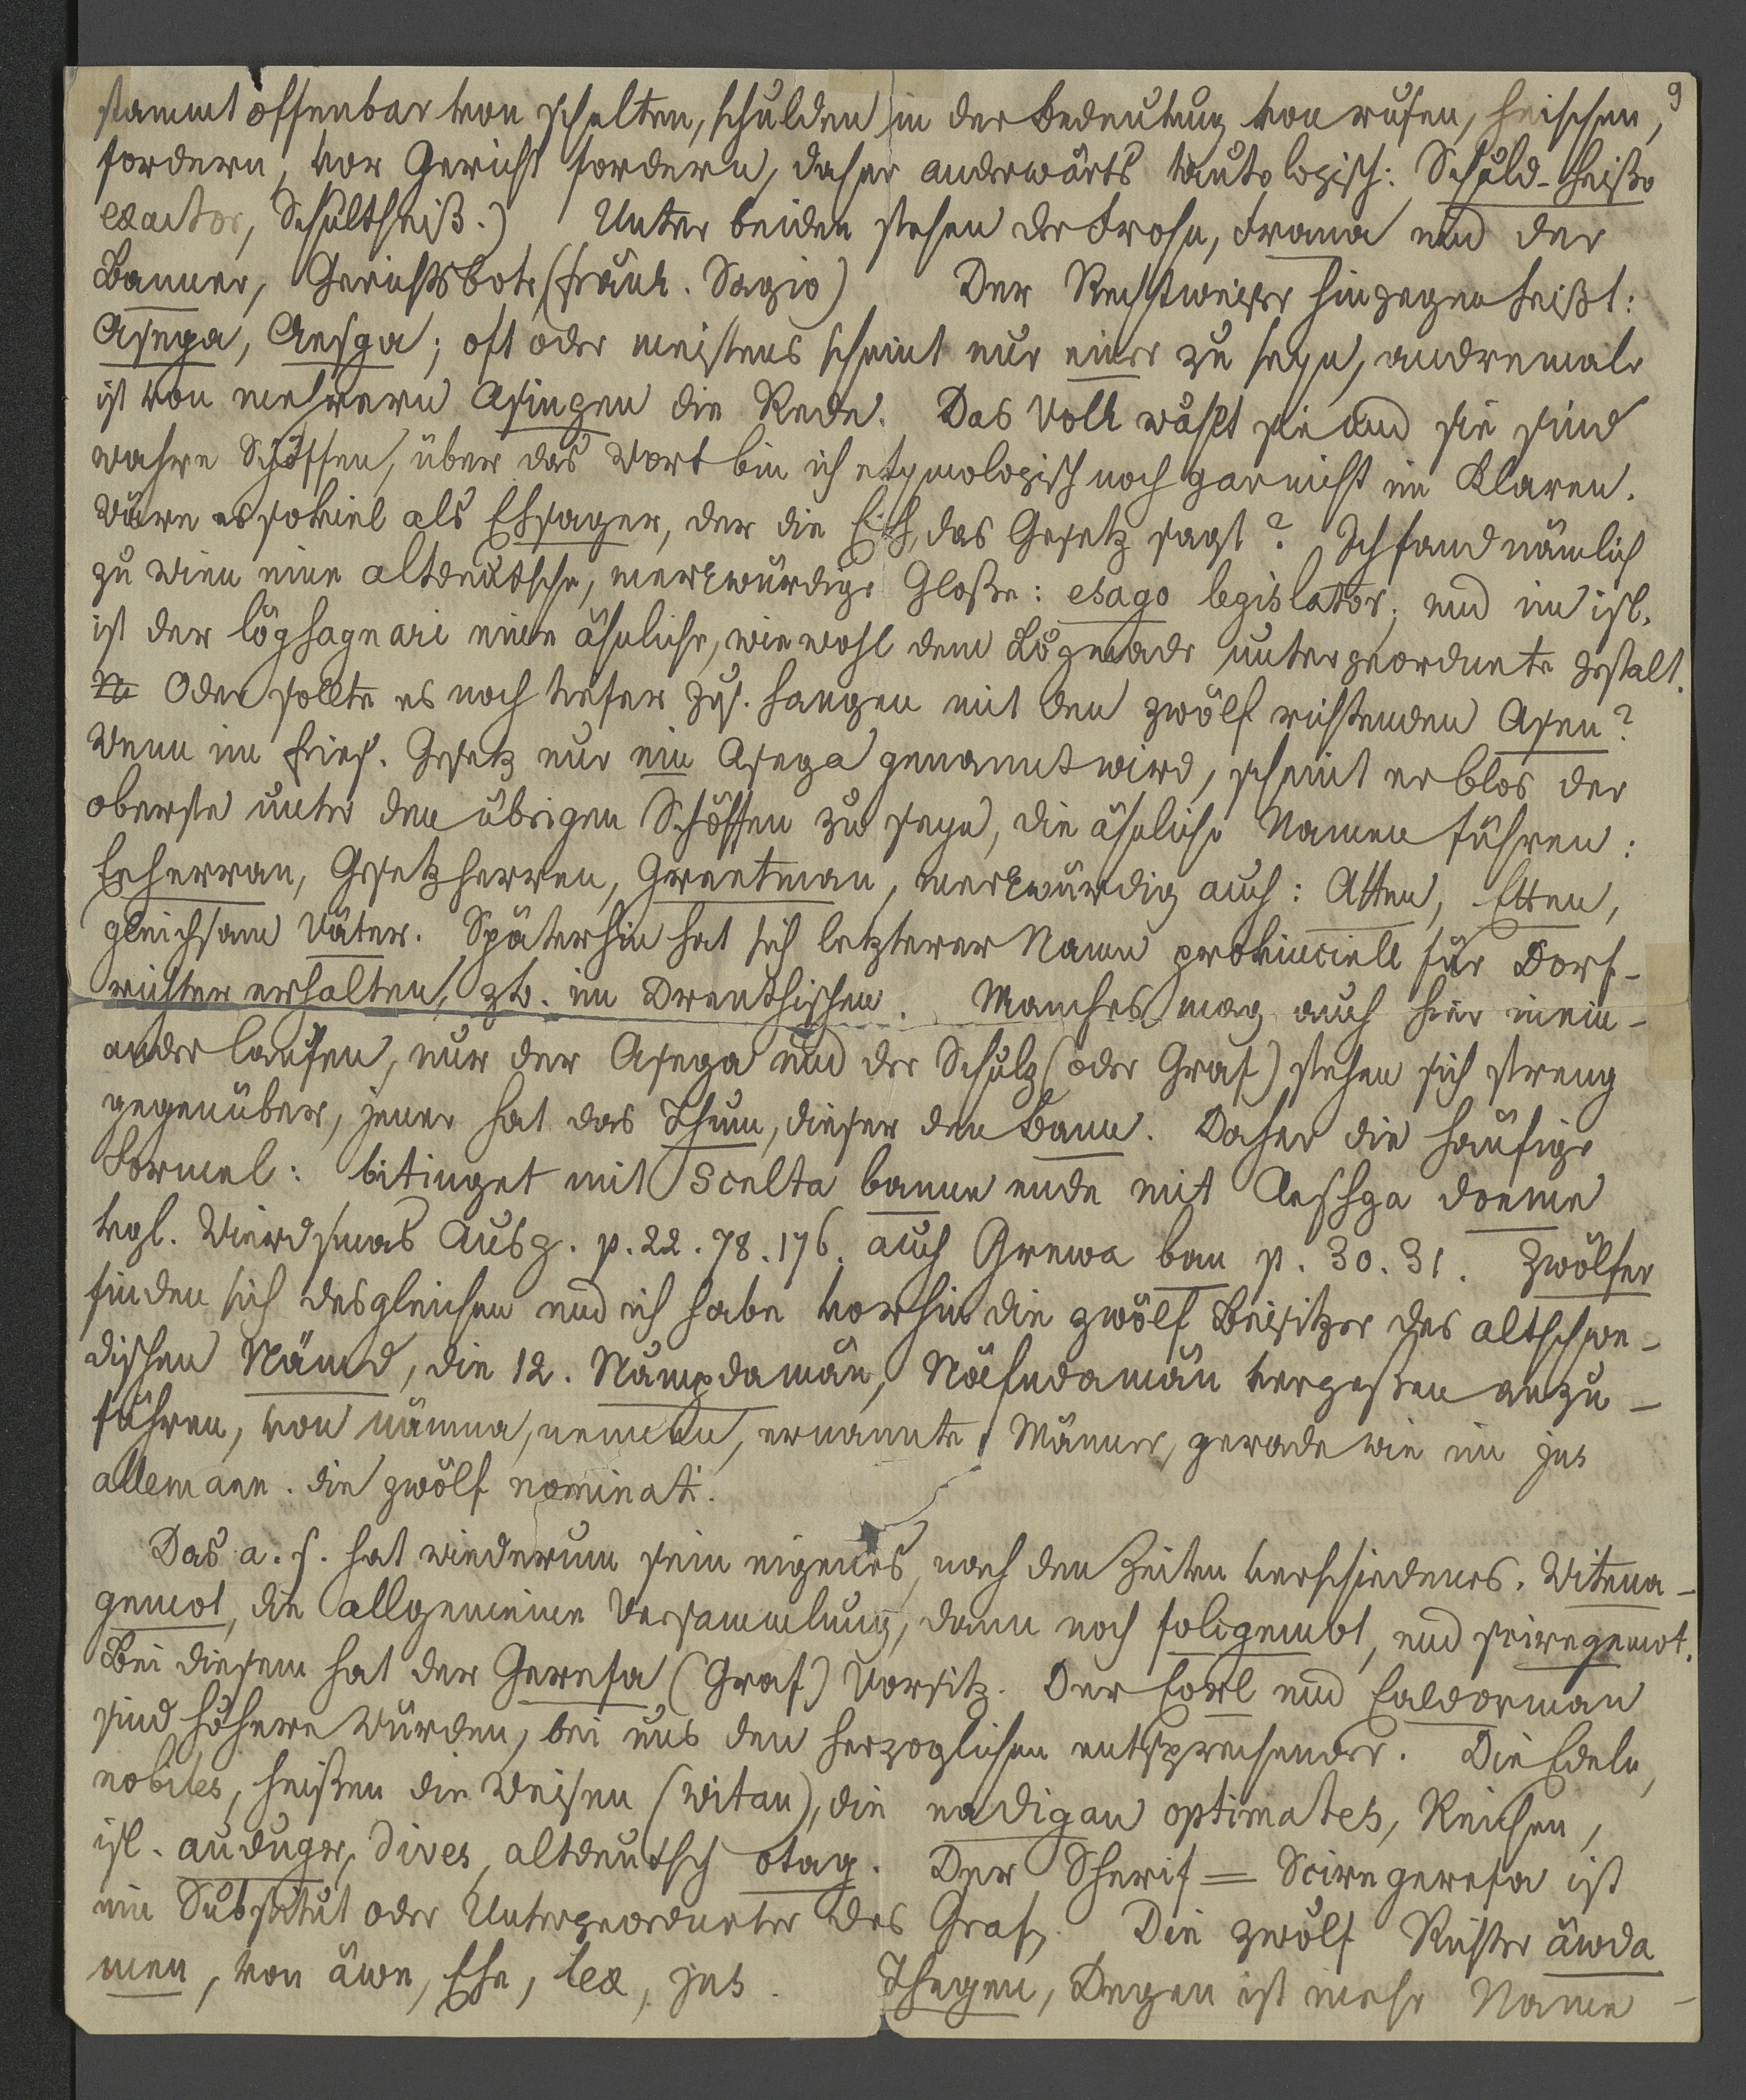 9
stammt offenbar von schelten, schulden in der Bedeutung von rufen, heischen,
fordern, vor Gericht fordern, daher anderwärts tautologisch: Schuld-heißo
exactor, Schultheiß.) Unter beiden stehen der Frohn, Frana und der
Banner, Gerichtsbote (fränk. Sagio) Der Rechtweiser hingegen heißt:
Asega, Aesga; oft oder meistens scheint nur einer zu seyn, andremale
ist von mehrern Asingen die Rede. Das Volk wählt sie und sie sind
wahre Schöffen, über das Wort bin ich etymologisch noch gar nicht im Klaren.
Wäre es soviel als Ehsager, der die Eh, das Gesetz sagt? Ich fand nämlich
zu Wien eine altdeutsche, merkwürdige Glosse: esago legislator; und im isl.
ist der lögsagnari eine ähnliche, wiewohl dem Lögmadr untergeordnete Gestalt.
Oder sollte es noch tiefer zus. hangen mit den zwölf richtenden Asen?
Wenn im fries. Gesetz nur ein Asega genannt wird, scheint er blos der
oberste unter den übrigen Schöffen zu seyn, die ähnliche Namen führen:
Eeherran, Gesetzherren, Greetman, merkwürdig auch: Atten, Etten,
gleichsam Väter. Späterhin hat sich letzterer Name provinciell für Dorf-
richter erhalten, zb. im Drenthischen. Manches mag auch hier inein-
ander laufen, nur der Asega und der Schulz (oder Graf) stehen sich streng
gegenüber, jener hat das Thum, dieser den Bann. Daher die häufige
Formel: bitinget mit Scelta banne ende mit Aeshga doeme
vgl. Wierdsmas Ausg. p. 22. 78. 176. auch Grewa ban p. 30. 31. Zwölfer
finden sich desgleichen und ich habe vorhin die zwölf Beisitzer des altschwe-
dischen Nämd, die 12. Nämpdamän, Näfndamän vergessen anzu-
führen, von nämna, nennen, ernannte Männer, gerade wie im jus
allemann. die zwölf nominati.
Das a. s. hat wiederum sein eigenes, nach den Zeiten verschiedenes. Witena-
gemot, die allgemeine Versammlung, dann noch folcgemot, und sciregemot.
Bei diesem hat der Gerefa (Graf) Vorsitz. Der Eorl und Ealdorman
sind höhere Würden, bei uns den herzoglichen entsprechender. Die Edeln,
nobiles, heißen die Weisen (Witan), die eadigan optimates, Reichen,
isl. audugr, dives, altdeutsch otag. Der Sherif = Sciregerefa ist
ein Substitut oder Untergeordneter des Grafen. Die zwölf Richter äwda
men, von äwe, Ehe, lex, jus. Thegen, Degen ist mehr Name -